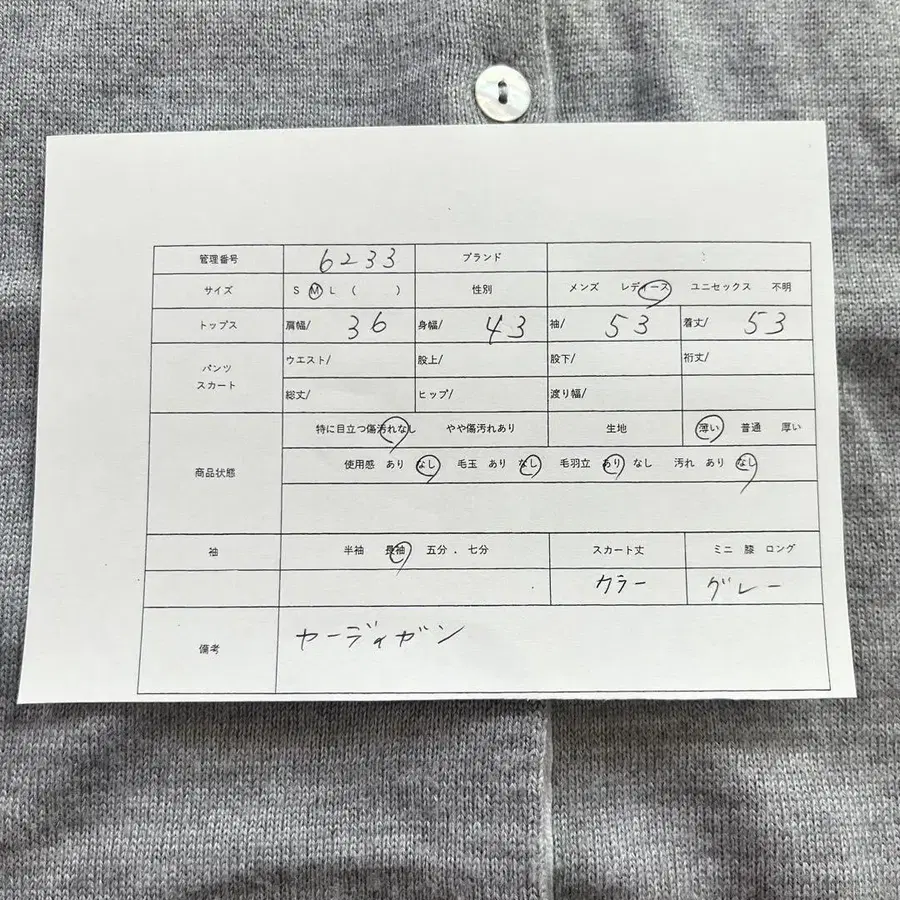 管理番号 6233 ブランド
サイズ S M L ( ) 性別 メンズ レディース ユニセックス 不明
トップス 肩幅/ 36 身幅/ 43 袖/ 53 着丈/ 53
パンツ スカート ウエスト/ 股上/ 股下/ 裄丈/
総丈/ ヒップ/ 渡り幅/
商品状態 特に目立つ傷汚れなし やや傷汚れあり 生地 薄い 普通 厚い
使用感 あり なし 毛玉 あり なし 毛羽立 あり なし 汚れ あり なし
袖 半袖 長袖 五分 . 七分 スカート丈 ミニ 膝 ロング
カラー グレー
備考 カーディガン